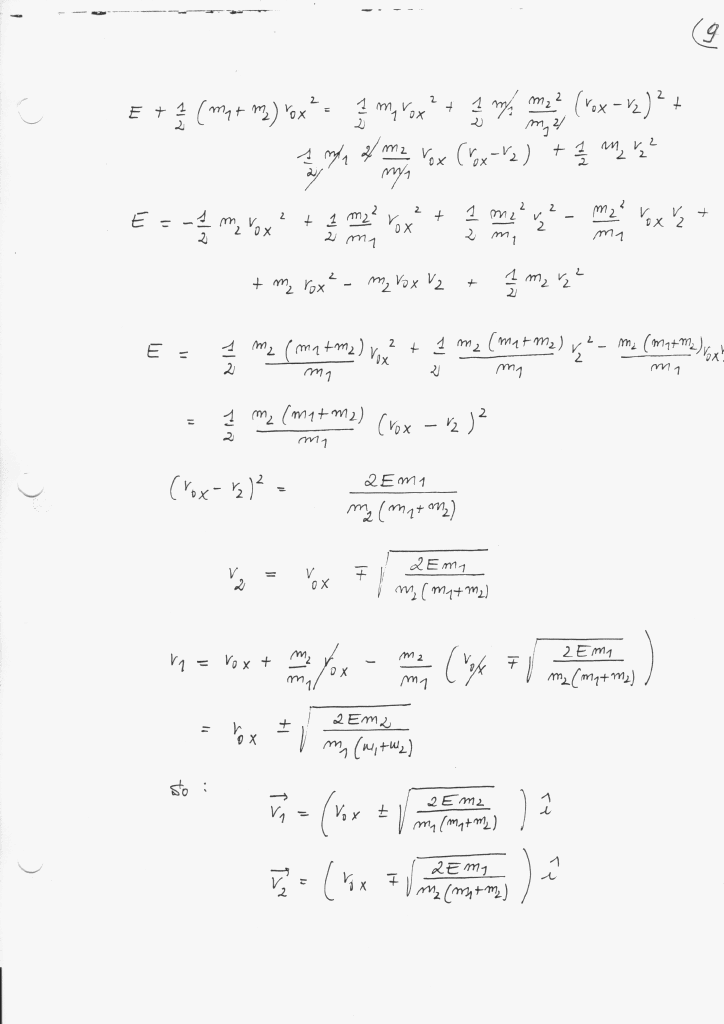 (9
E + 1/2 (m₁+m₂) v₀ₓ² = 1/2 m₁ v₀ₓ² + 1/2 m₁ m₂²/m₁² (v₀ₓ-v₂)² +
1/2 m₁ 2 m₂/m₁ v₀ₓ (v₀ₓ-v₂) + 1/2 m₂ v₂²
E = -1/2 m₂ v₀ₓ² + 1/2 m₂²/m₁ v₀ₓ² + 1/2 m₂²/m₁ v₂² - m₂²/m₁ v₀ₓ v₂ +
+ m₂ v₀ₓ² - m₂ v₀ₓ v₂ + 1/2 m₂ v₂²
E = 1/2 m₂(m₁+m₂)/m₁ v₀ₓ² + 1/2 m₂(m₁+m₂)/m₁ v₂² - m₂(m₁+m₂)/m₁ v₀ₓ v
= 1/2 m₂(m₁+m₂)/m₁ (v₀ₓ - v₂)²
(v₀ₓ - v₂)² = 2Em₁/m₂(m₁+m₂)
v₂ = v₀ₓ ∓ √(2Em₁/m₂(m₁+m₂))
v₁ = v₀ₓ + m₂/m₁ v₀ₓ - m₂/m₁ (v₀ₓ ∓ √(2Em₁/m₂(m₁+m₂)))
= v₀ₓ ± √(2Em₂/m₁(m₁+m₂))
so :
v⃗₁ = (v₀ₓ ± √(2Em₂/m₁(m₁+m₂))) î
v⃗₂ = (v₀ₓ ∓ √(2Em₁/m₂(m₁+m₂))) î